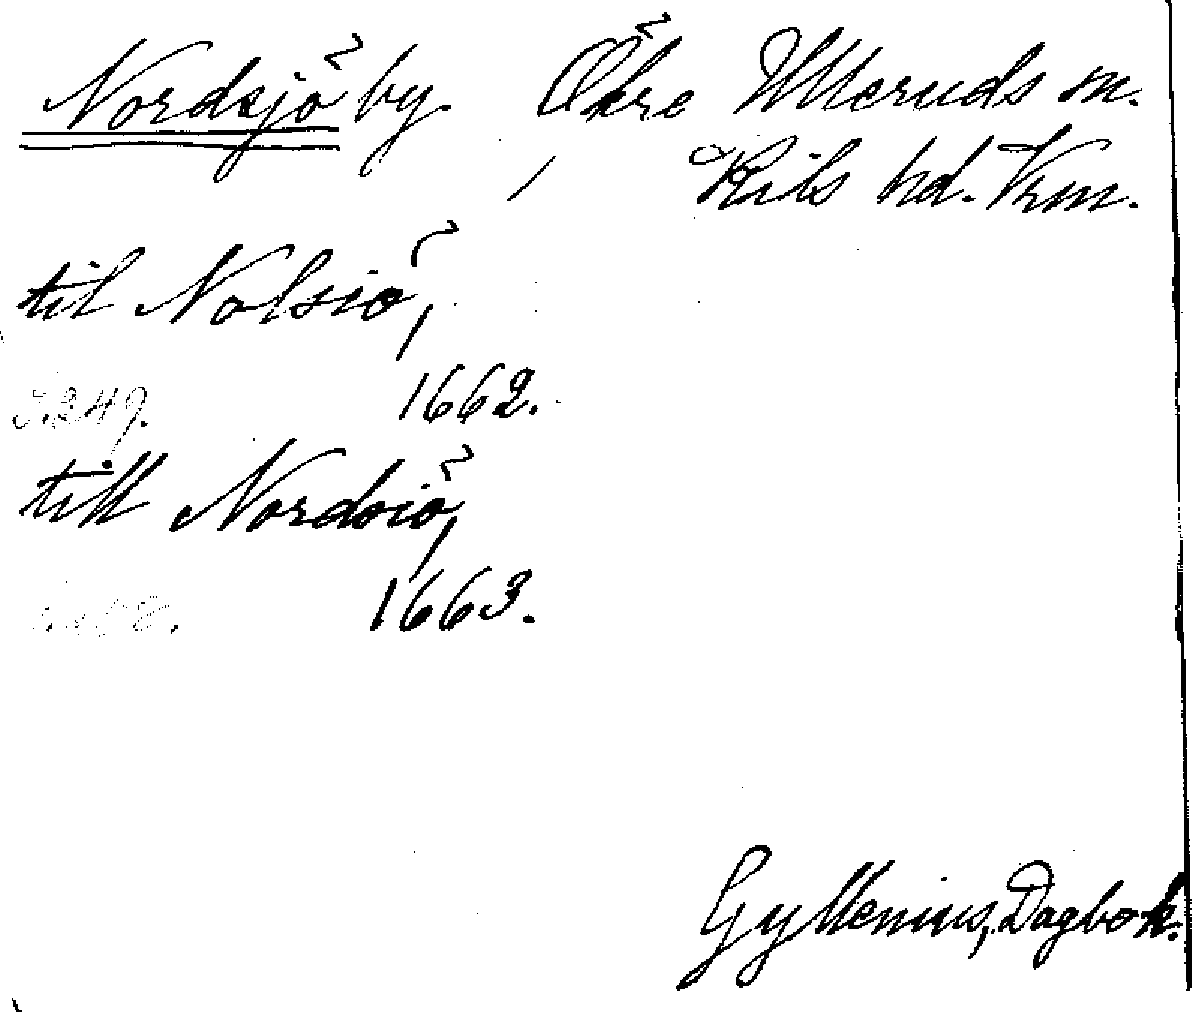 Nordsjö by. Ö Ulleruds sn.
Kils hd. Vrm.
til Nolsiö,
s. 249. 1662.
till Nordsiö,
1663.
Gyllenius, Dagbok.